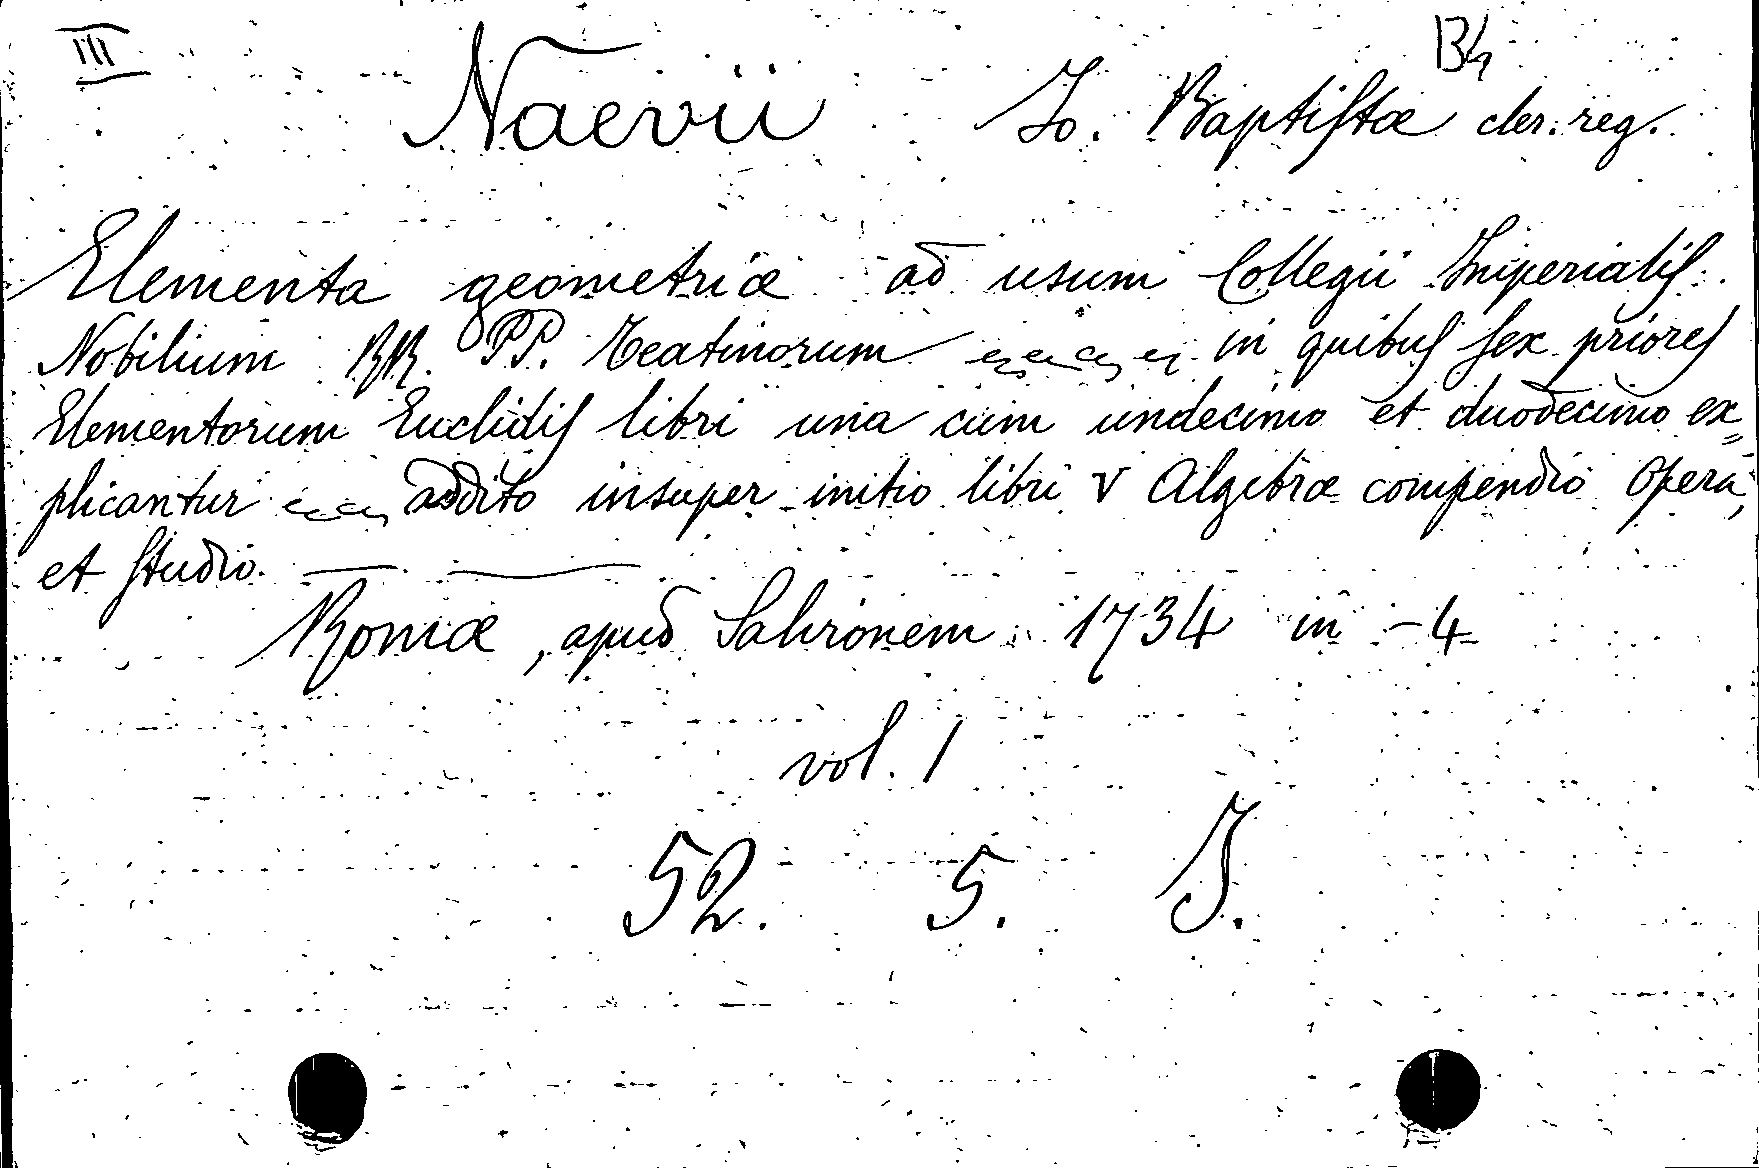 III B4
Naevii Jo. Baptiſtæ cler. reg.
Elementa geometriæ ad usum Collegii Imperialiſ
Nobilium RR. PP. Teatinorum in quibuſ ſex prioreſ
Elementorum Euclidiſ libri una cum undecimo et duodecimo ex=
plicantur addito insuper initio libri V Algebræ compendio Opera,
et ſtudio.
Romæ, apud Salvionem 1734 in - 4
vol. 1
52. 5. J.